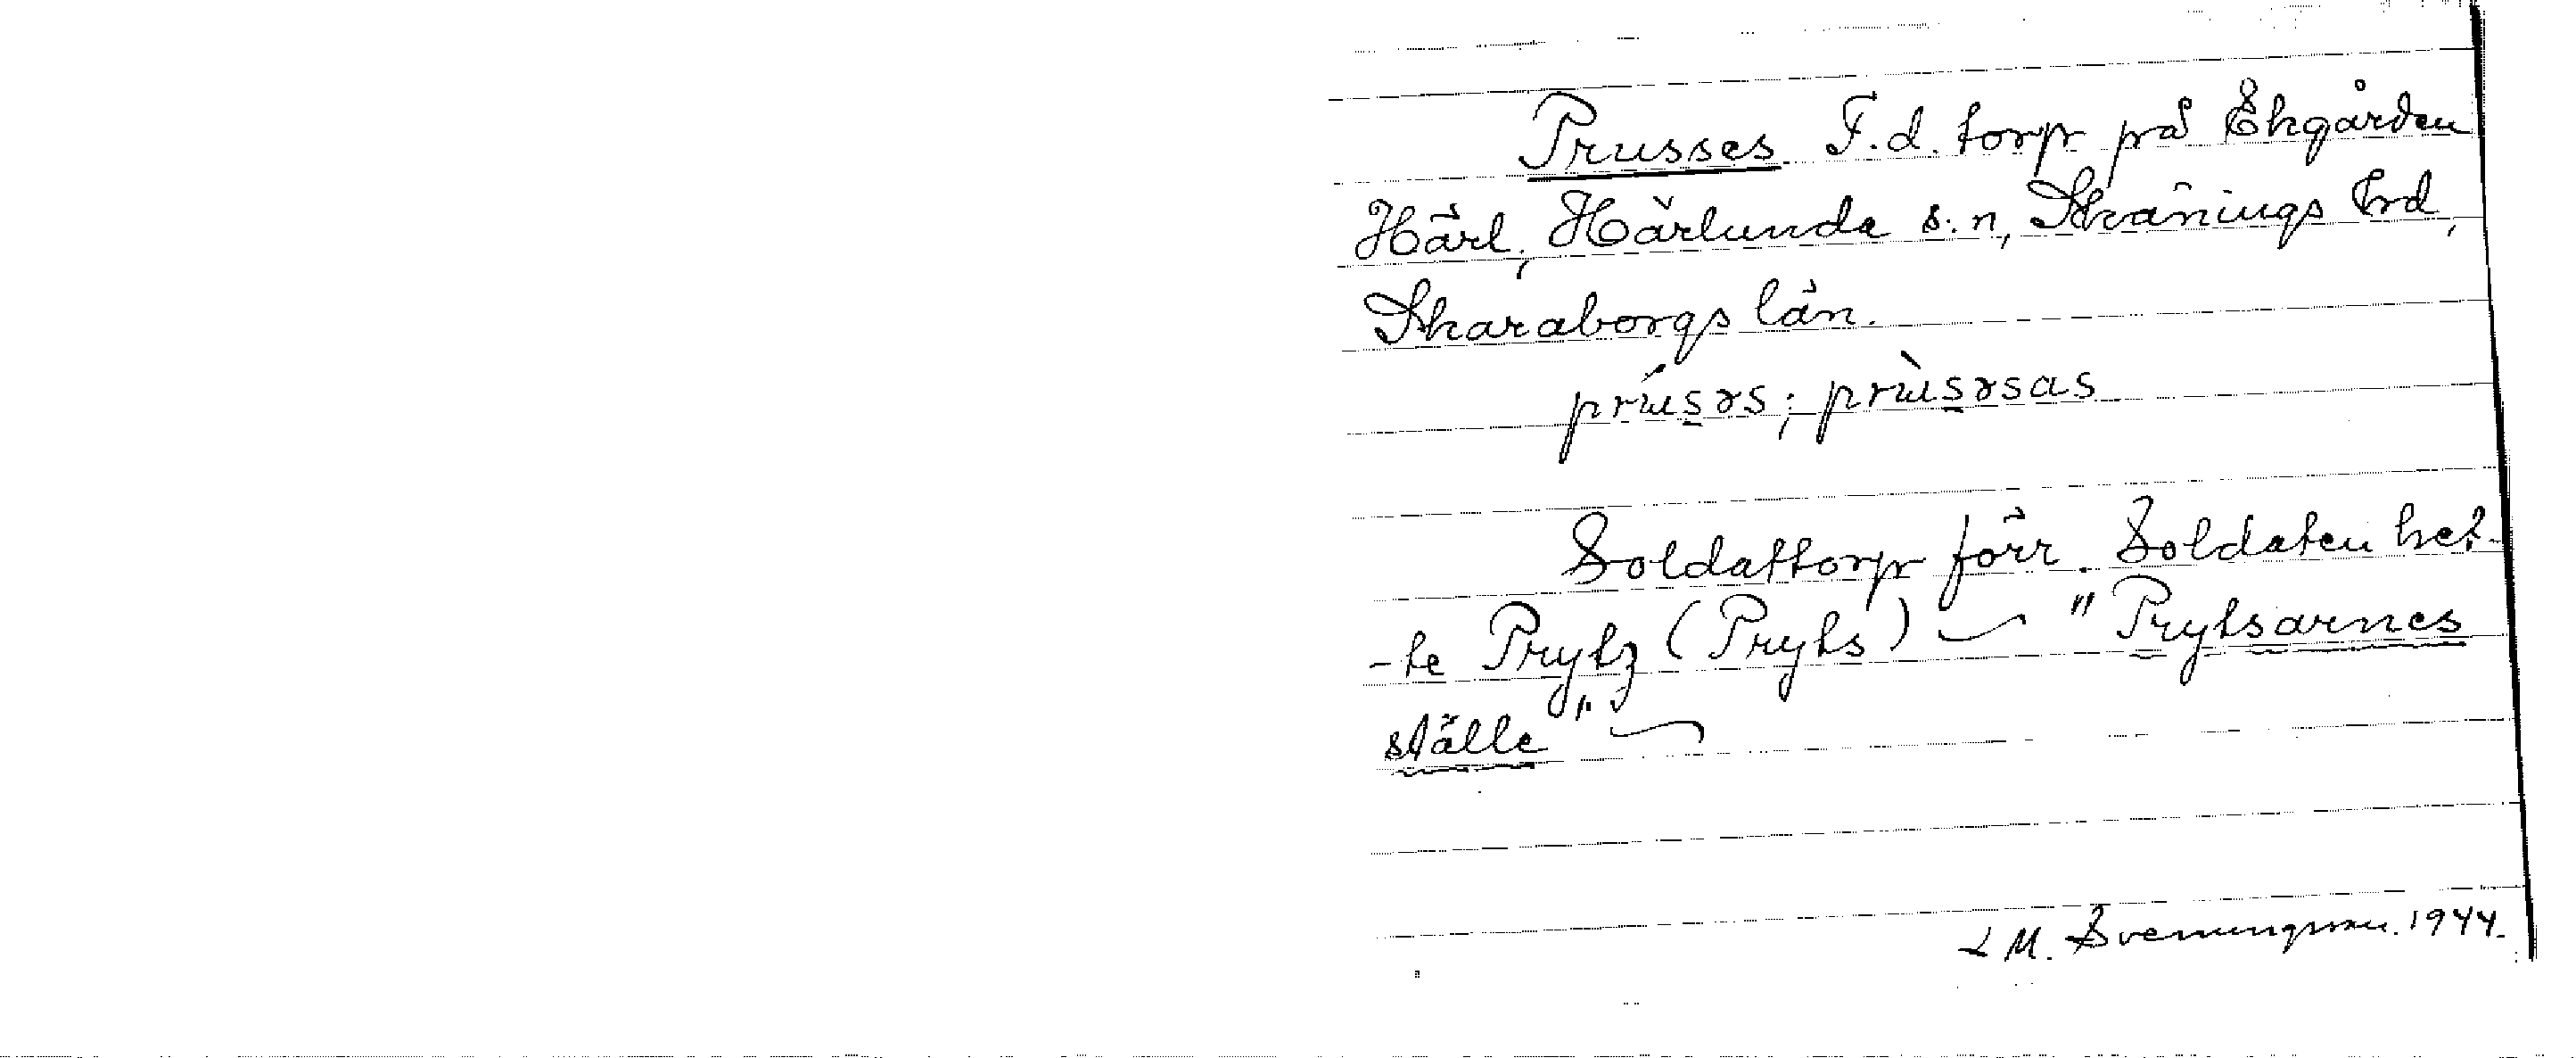 Prusses F.d. torp på Ekgården
Härl, Härlunda s:n, Skånings hrd,
Skaraborgs län.
prúsəs; prùsəsas
Soldattorp förr. Soldaten het-
-te Prytz (Pryts) ~ "Prytsarnes
ställe" ~
L M. Svenungsson. 1944.